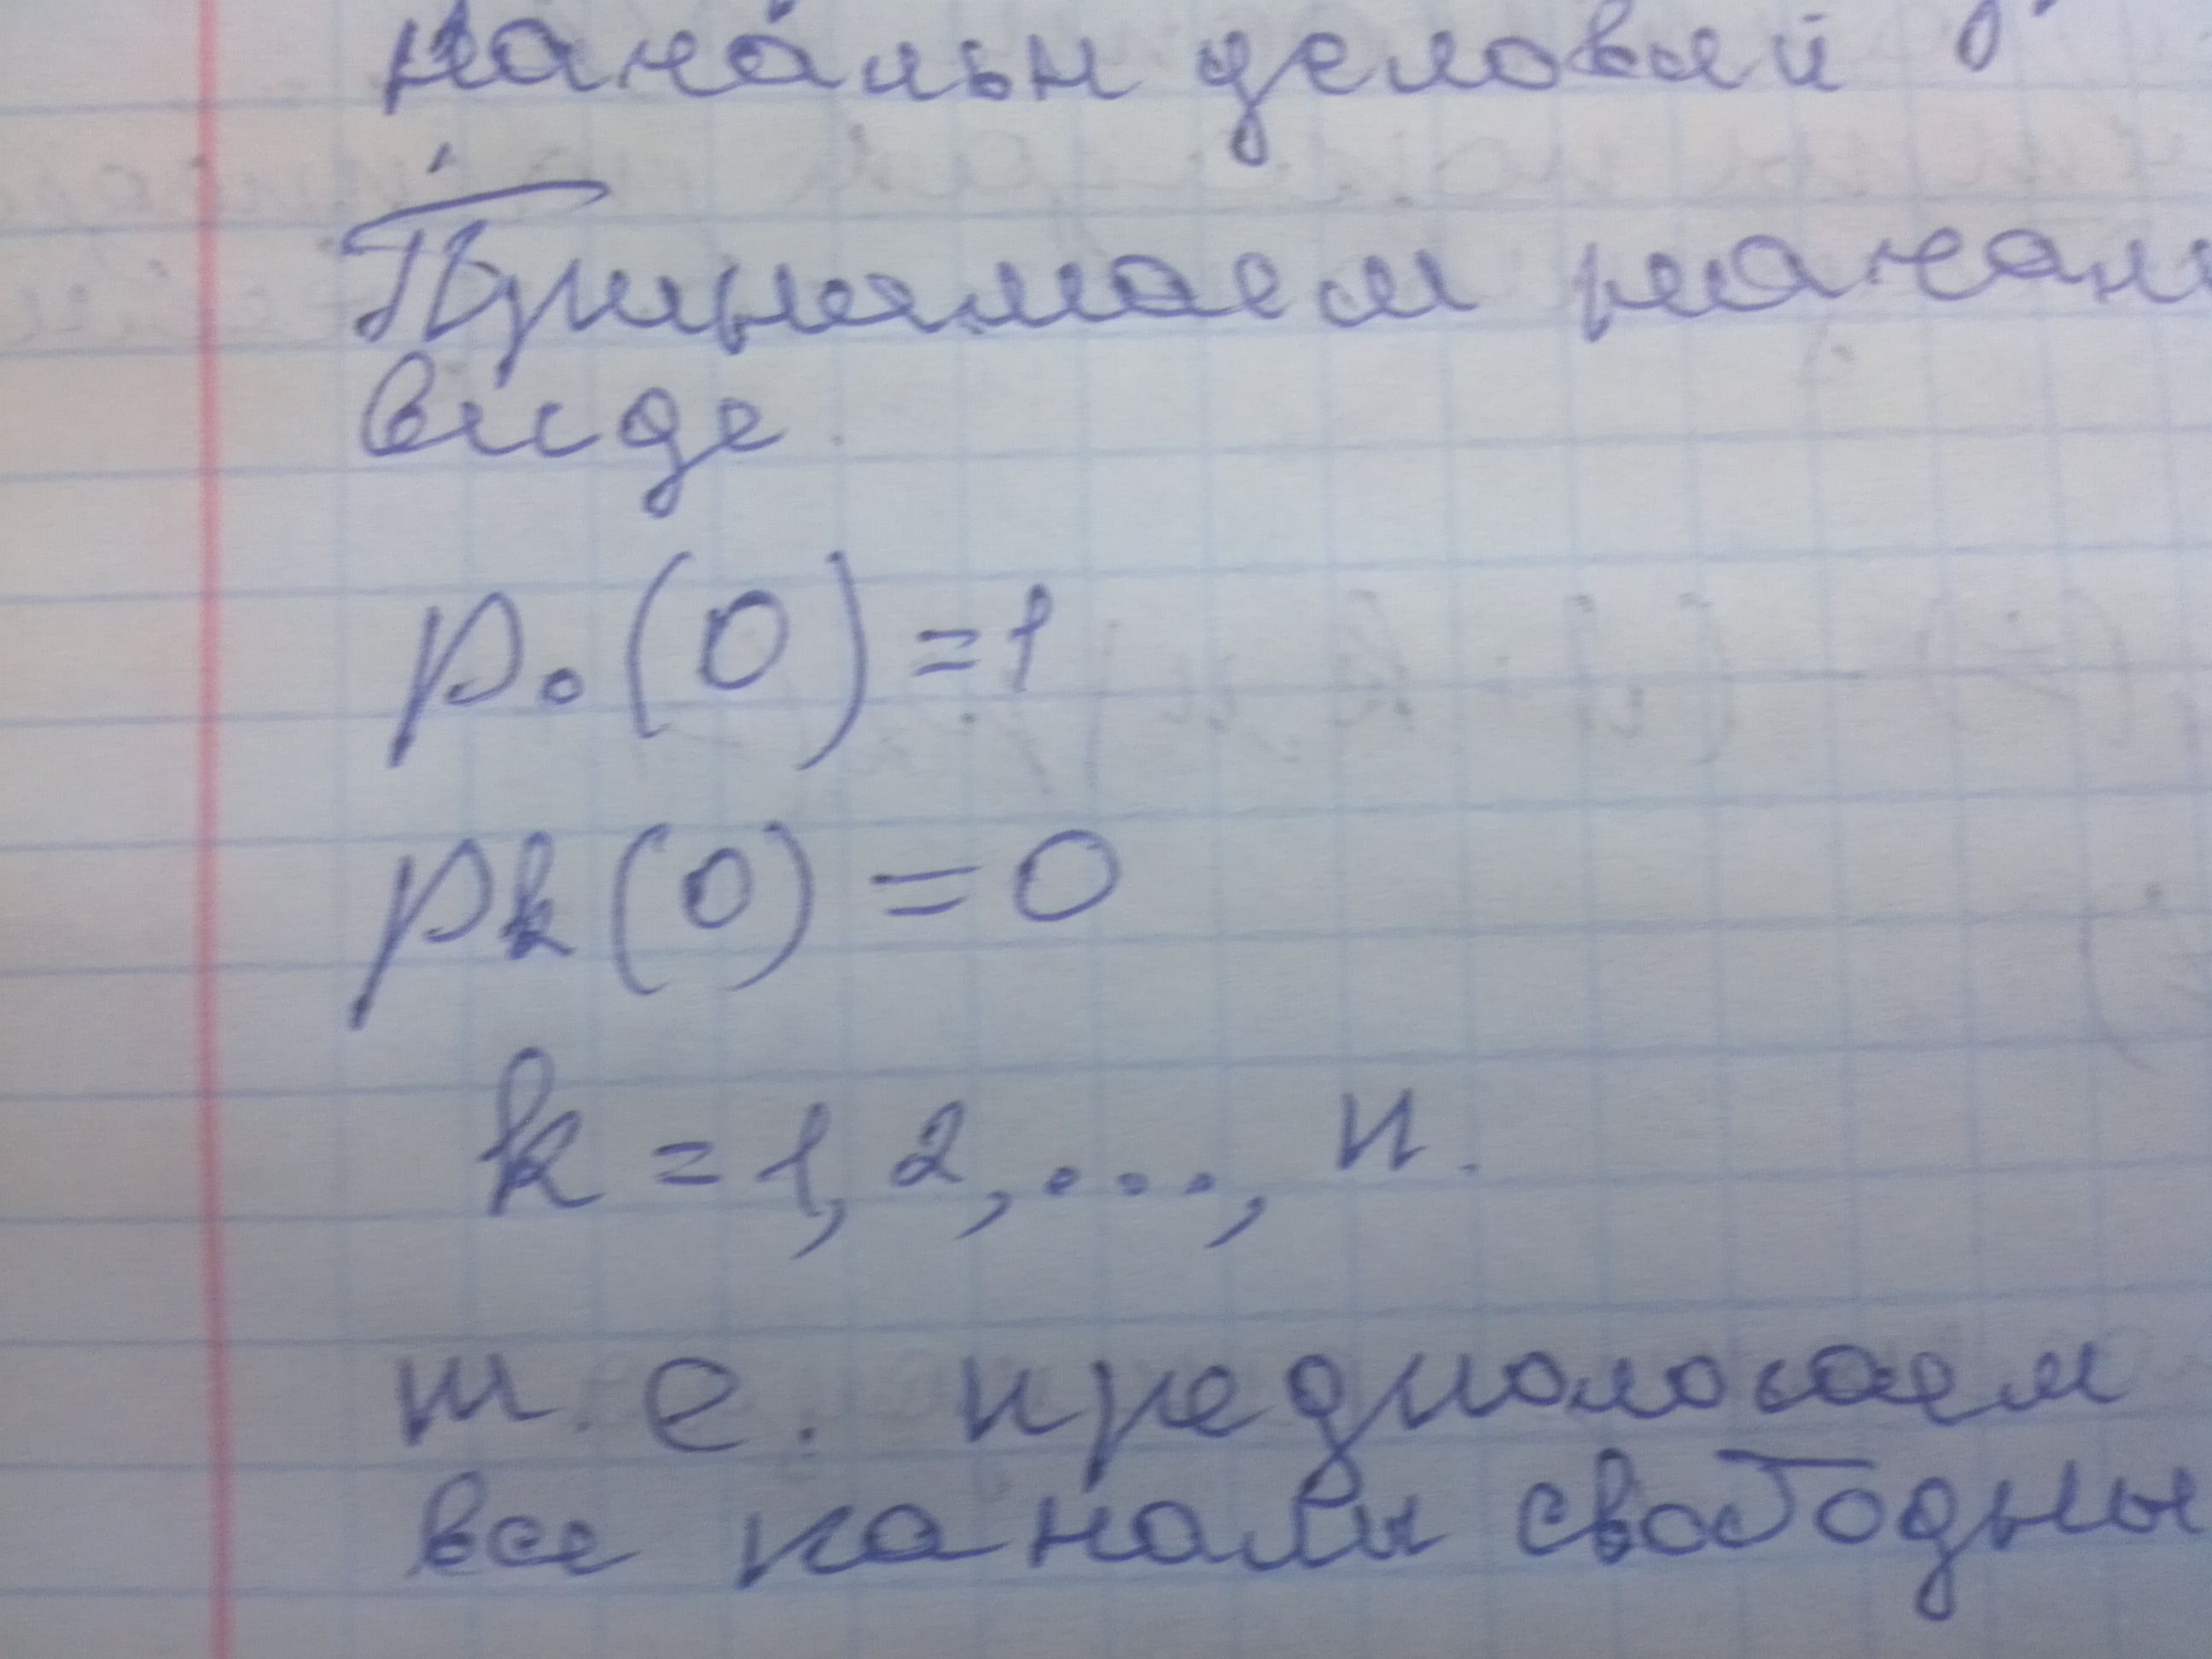 начальн условий
Принимаем начал
виде.
p₀(0)=1
pk(0)=0
k=1,2,...,n.
т.е. предпологаем
все каналы свободны